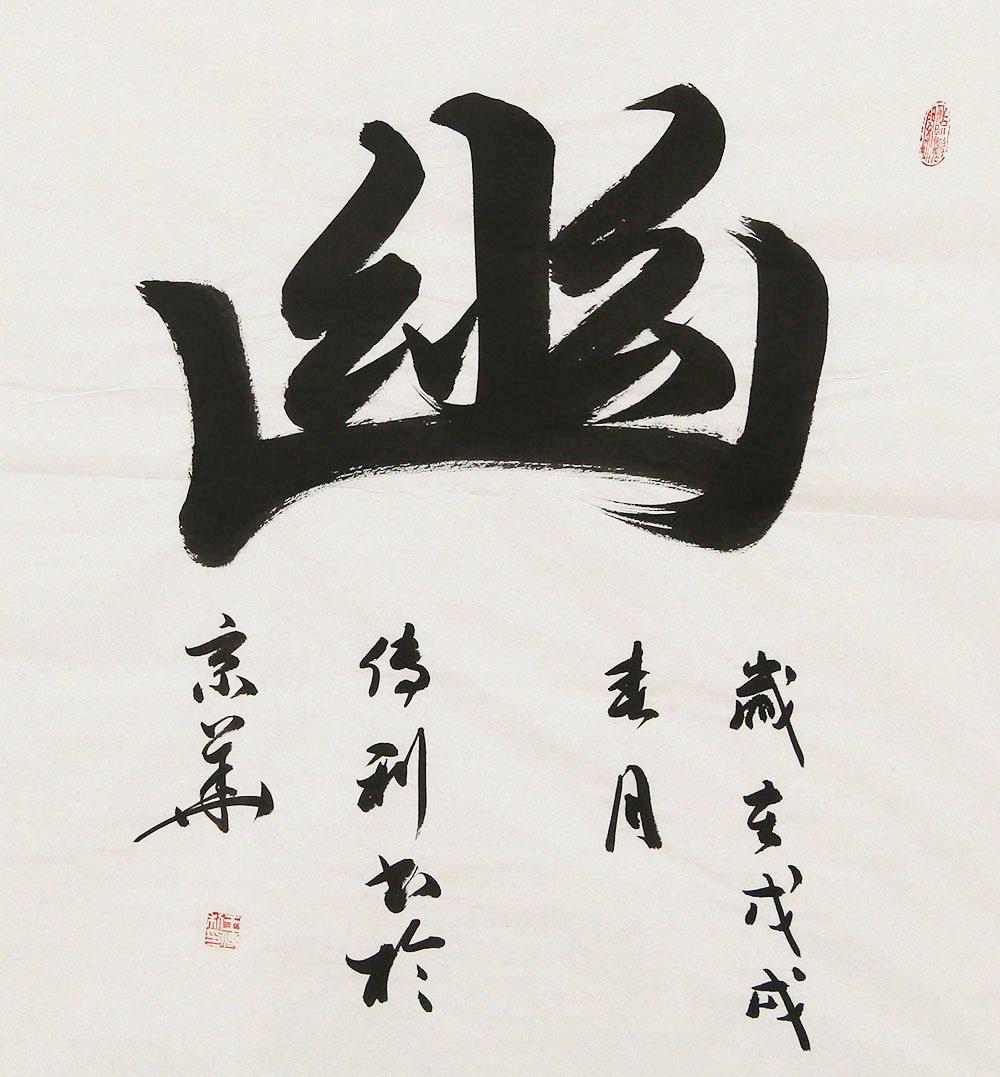 幽
歲在戊戌
春月
傳利書於
京華